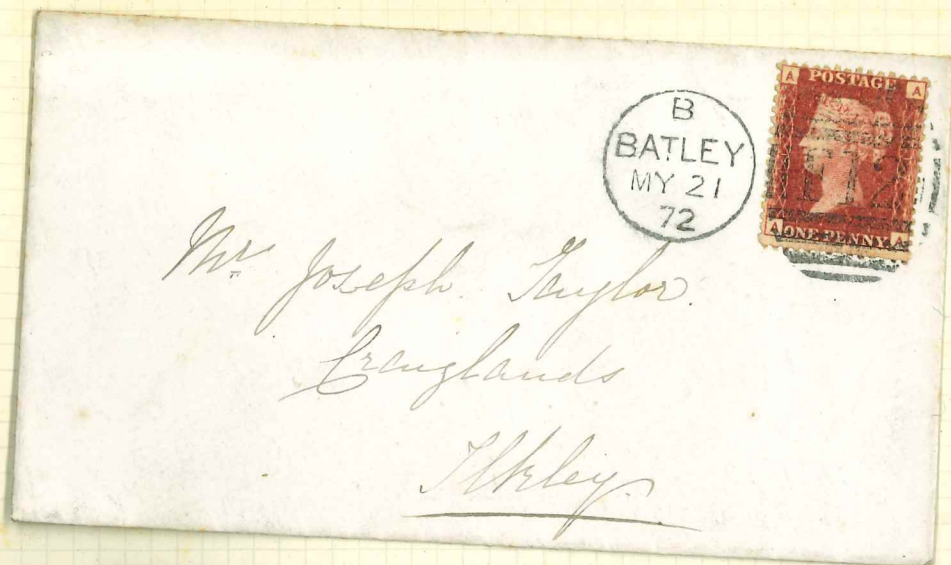 B
BATLEY
MY 21
72
A POSTAGE A
A ONE PENNY A
Mr Joseph Taylor
Craiglands
Ilkley